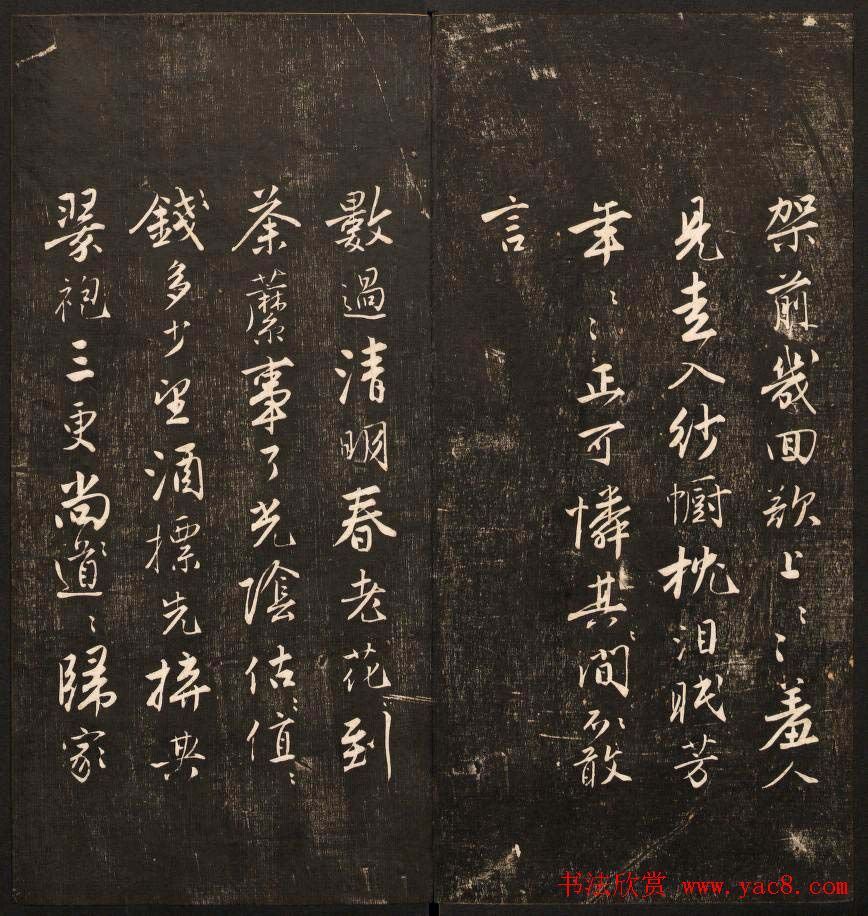 架前幾回欲上〻〻羞人
見走入紗幮枕泪眠芳
年〻〻正可憐其〻間不敢
言
數過清明春老花〻到〻
荼蘼事了光陰估〻值〻
錢多少望酒標先拚典
翠袍三更尚道〻歸家
书法欣赏 www.yac8.com